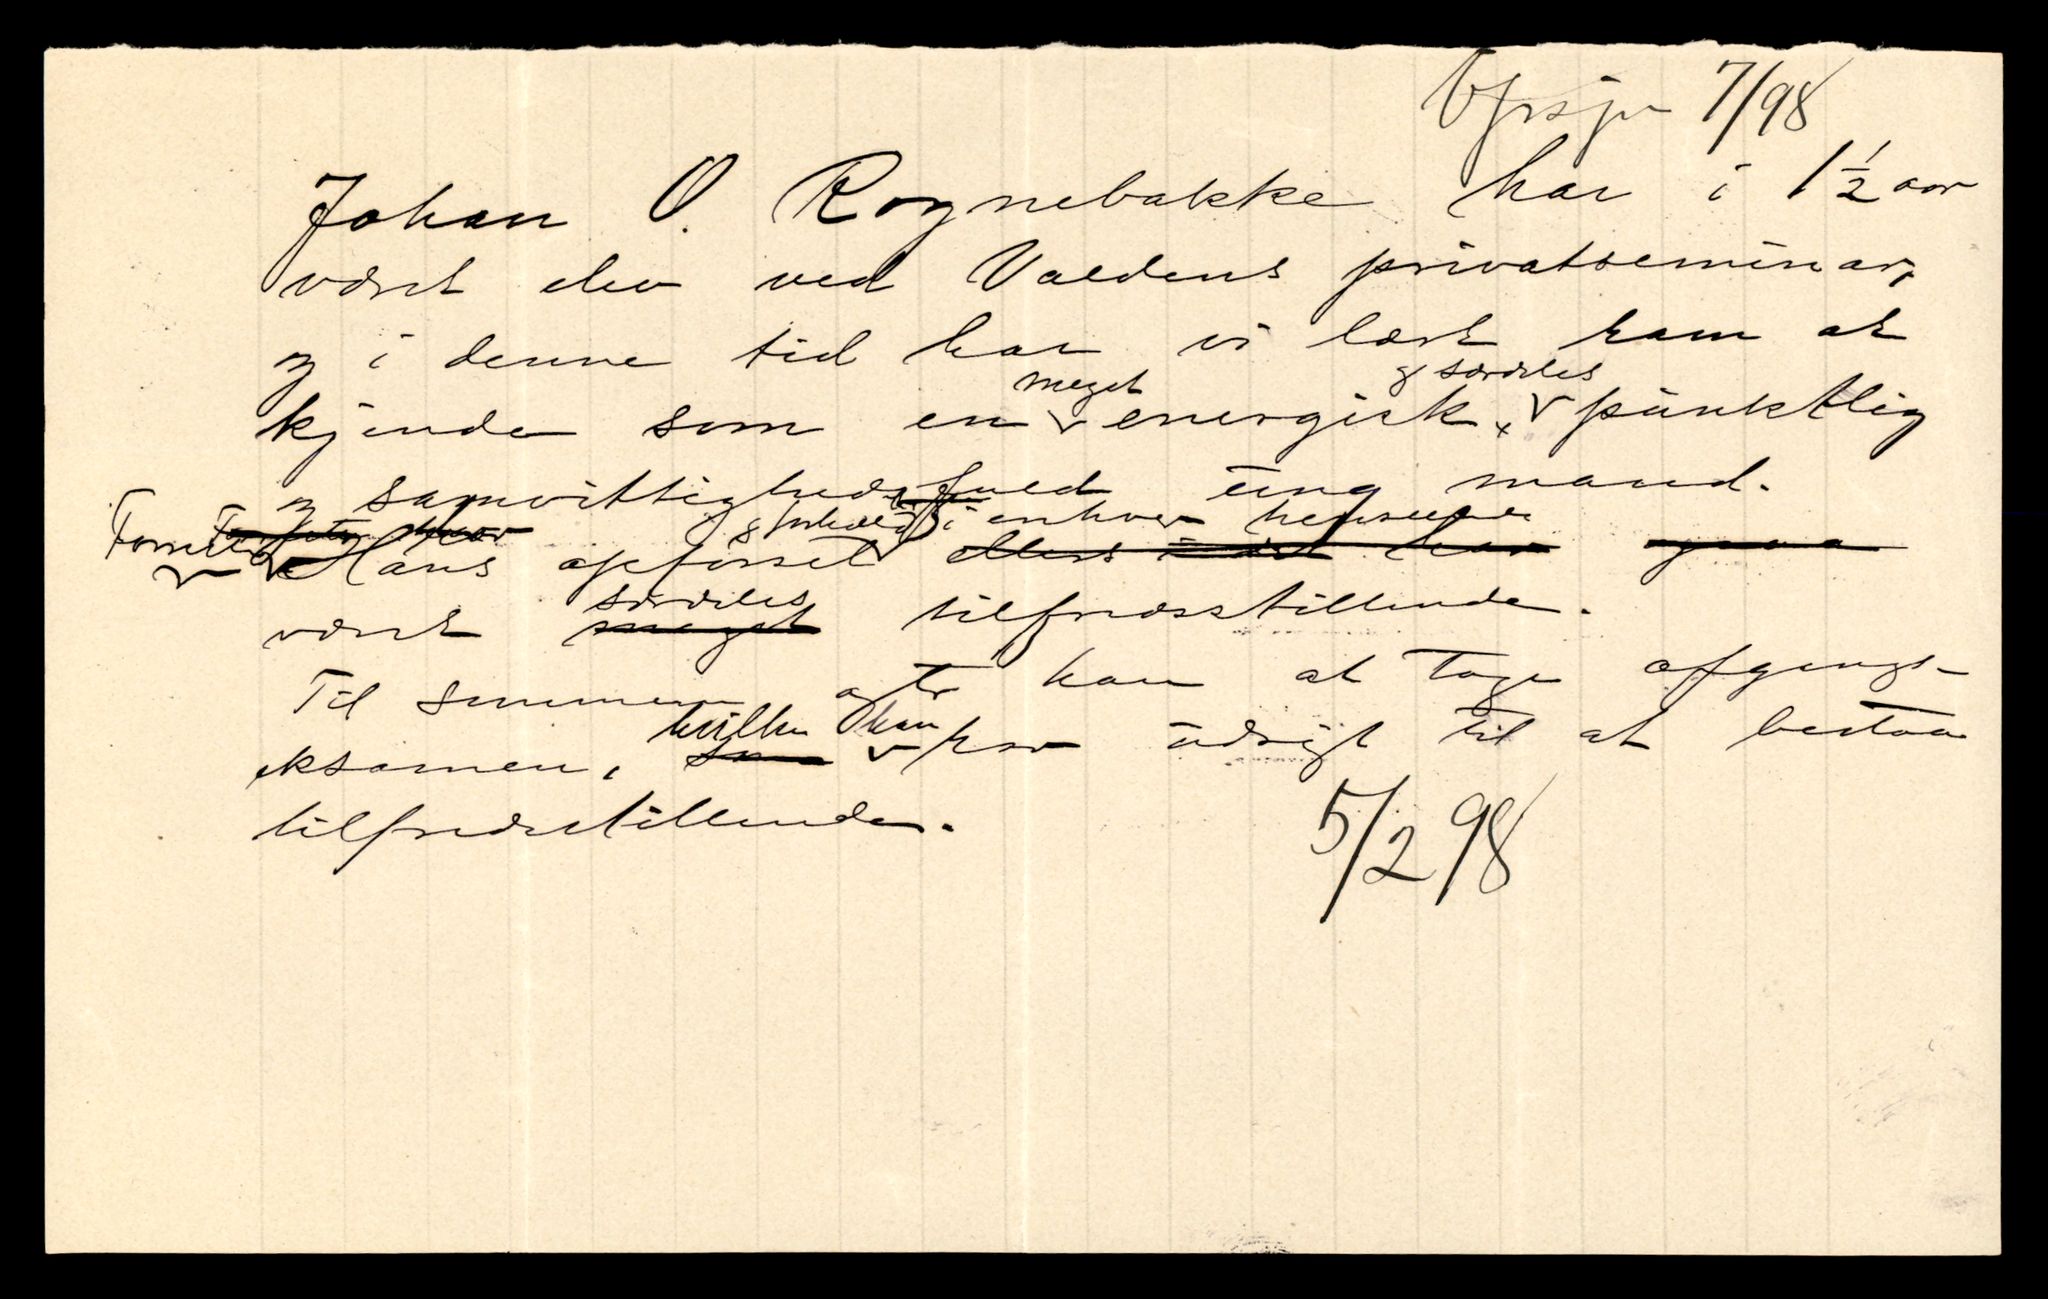 7/98
Johan O. Rognebakke har i 1½ aar
været elev ved Valdens privatseminar,
og i denne tid har vi lært ham at
kjende som en meget energisk, og særdeles punktlig
og samvittighedsfuld ung mand.
Forresten har hans opførsel og forhold i enhver henseende ellers
været særdeles meget tilfredsstillende.
Til sommeren agter han at tage afgangs-
eksamen, hvilken som han har udsigt til at bestaa
tilfredsstillende.
5/2 98